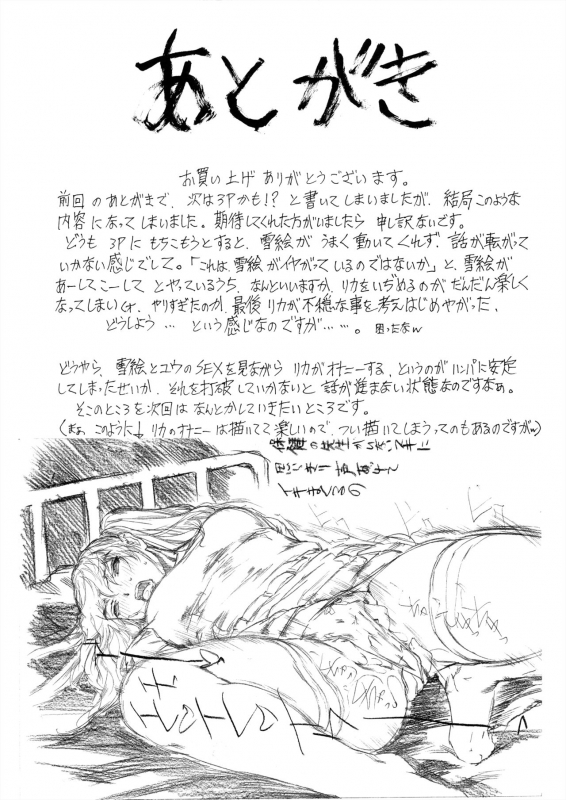 あとがき
お買い上げ ありがとうございます。
前回のあとがきで、次は3Pかも!? と書いてしまいましたが、結局このような
内容になってしまいました。期待してくれた方がいましたら 申し訳ないです。
どうも 3Pに もちこもうとすると、雪絵が うまく動いてくれず 話が転がって
いかない感じでして。「これは雪絵がイヤがっているのではないか」と、雪絵が
あーしてこーして とやっているうち、なんといいますか、リカをいぢめるのが だんだん楽しく
なってしまい やりすぎたのか、最後 リカが不穏な事を考えはじめやがった、
どうしよう… という感じなのですが……。 困ったなw
どうやら、雪絵とユウのSEXを見ながら リカがオナニーする、というのが ハンパに安定
してしまったせいか、それを打破していかないと 話が進まない状態なのですなぁ。
そこのところを次回は なんとかしていきたいところです。
(まぁ、このように↓ リカのオナニーは描いてて楽しいので、つい描いてしまうってのもあるのですがw)